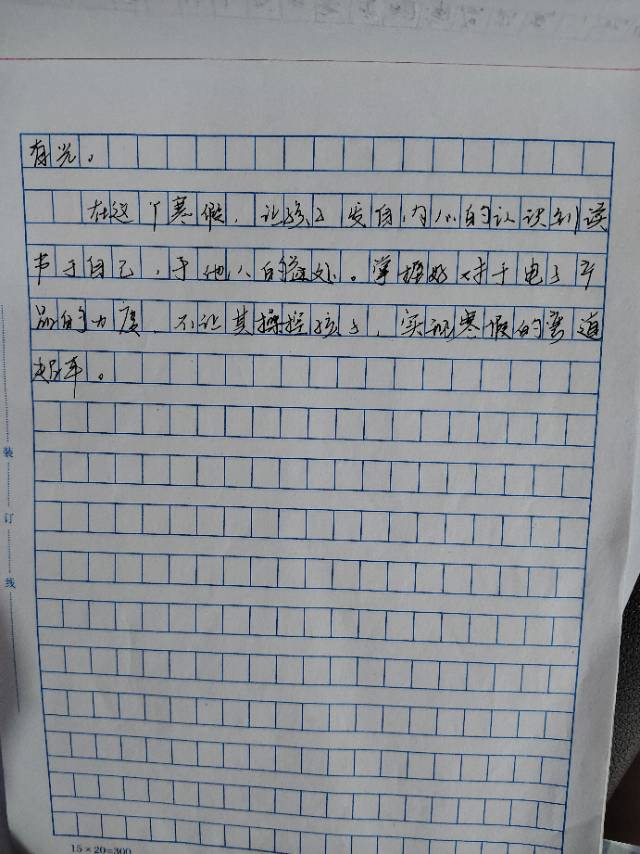 有光。
在这个寒假，让孩子发自内心的认识到读
书于自己，于他人的益处。掌握好对于电子产
品的力度，不让其操控孩子，实现寒假的弯道
超车。
装
订
线
15×20=300